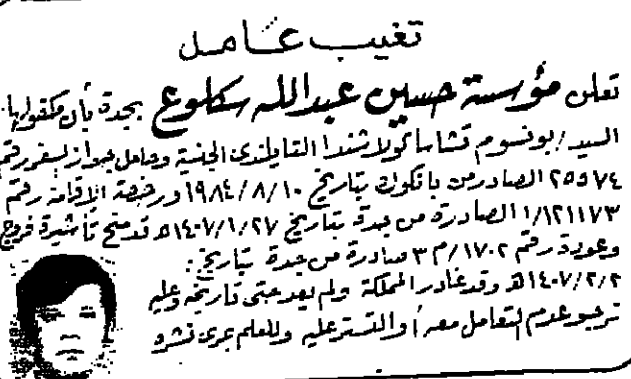 تغيب عامل
تعلن مؤسسة حسين عبدالله سكلوع بجدة بأن مكفولها
السيد / بونسوم تشابا كولاشندا التايلندى الجنسية وحامل جواز سفر رقم
٢٥٥٧٤ الصادر من بانكوك بتاريخ ١٩٨٤/٨/١٠ ورخصة الإقامة رقم
١/١٢١١٧٣ الصادرة من جدة بتاريخ ١٤٠٧/١/٢٧ھ قد منح تأشيرة خروج
وعودة رقم ١٧٠٢/م ٣ صادرة من جدة بتاريخ
١٤٠٧/٢/٢ھ وقد غادر المملكة ولم يعد حتى تاريخه وعليه
نرجو عدم التعامل معه أو التستر عليه وللعلم جرى نشره